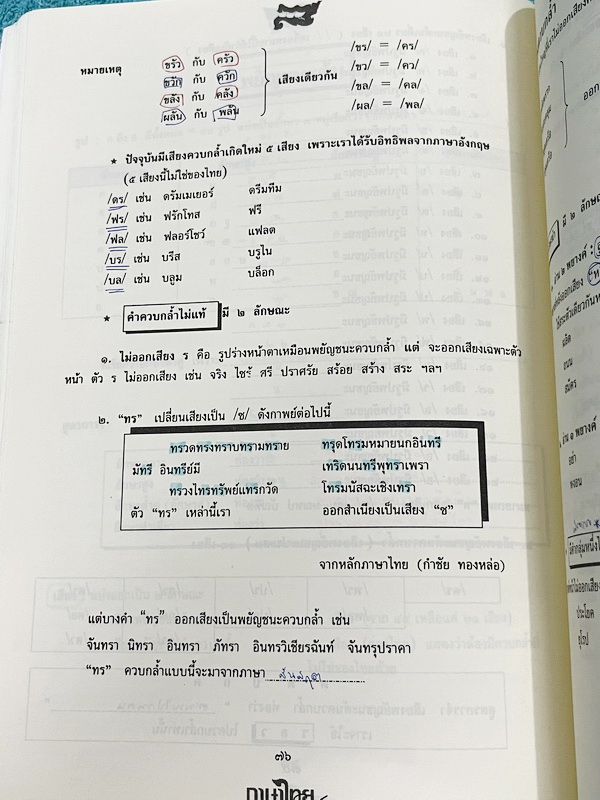 หมายเหตุ ขรัว กับ ครัว /ขร/ = /คร/
ขวิก กับ ควิก /ขว/ = /คว/
เสียงเดียวกัน
ขลัง กับ คลัง /ขล/ = /คล/
ผลัน กับ พลัน /ผล/ = /พล/
★ ปัจจุบันมีเสียงควบกล้ำเกิดใหม่ ๕ เสียง เพราะเราได้รับอิทธิพลจากภาษาอังกฤษ
(๕ เสียงนี้ไม่ใช่ของไทย)
/ดร/ เช่น ดรัมเมเยอร์ ดรีมทีม
/ฟร/ เช่น ฟรักโทส ฟรี
/ฟล/ เช่น ฟลอร์โชว์ แฟลต
/บร/ เช่น บรีส บรูไน
/บล/ เช่น บลูม บล็อก
★ คำควบกล้ำไม่แท้ มี ๒ ลักษณะ
๑. ไม่ออกเสียง ร คือ รูปร่างหน้าตาเหมือนพยัญชนะควบกล้ำ แต่ จะออกเสียงเฉพาะตัว
หน้า ตัว ร ไม่ออกเสียง เช่น จริง ไซร้ ศรี ปราศรัย สร้อย สร้าง สระ ฯลฯ
๒. “ทร” เปลี่ยนเสียงเป็น /ซ/ ดังกาพย์ต่อไปนี้
ทรวดทรงทราบทรามทราย ทรุดโทรมหมายนกอินทรี
มัทรี อินทรีย์มี เทริดนนทรีพุทราเพรา
ทรวงไทรทรัพย์แทรกวัด โทรมนัสฉะเชิงเทรา
ตัว “ทร” เหล่านี้เรา ออกสำเนียงเป็นเสียง “ซ”
จากหลักภาษาไทย (กำชัย ทองหล่อ)
แต่บางคำ “ทร” ออกเสียงเป็นพยัญชนะควบกล้ำ เช่น
จันทรา นิทรา อินทรา ภัทรา อินทรวิเชียรฉันท์ จันทรุปราคา
“ทร” ควบกล้ำแบบนี้จะมาจากภาษา สันสกฤต
๗๖
ภาษาไทย